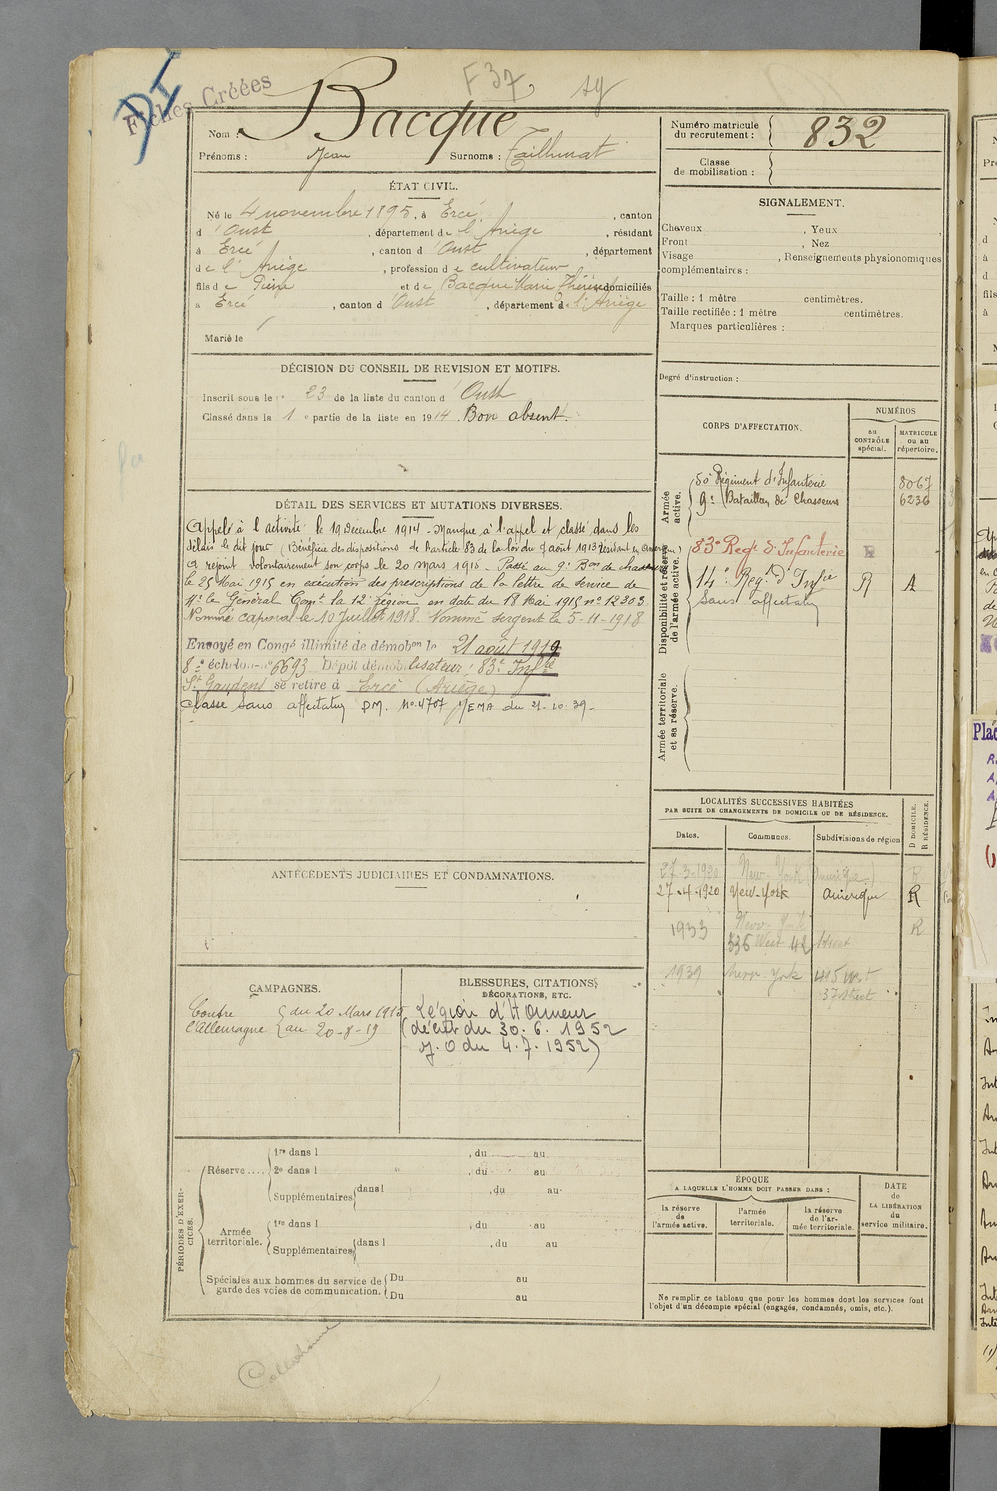 Fiches Créées
F 37
Nom : Bacque
Prénoms : Jean Surnoms : Taillurat
Numéro matricule du recrutement : 832
Classe de mobilisation :
ÉTAT CIVIL.
Né le 4 novembre 1895, à Ercé, canton
d'Oust, département de l'Ariège, résidant
à Ercé, canton d'Oust, département
de l'Ariège, profession de cultivateur
fils de Pierre et de Bacque Marie Thérèse domiciliés
à Ercé, canton d'Oust, département de l'Ariège
Marié le
SIGNALEMENT.
Cheveux , Yeux ,
Front , Nez
Visage , Renseignements physionomiques
complémentaires :
Taille : 1 mètre centimètres.
Taille rectifiée : 1 mètre centimètres.
Marques particulières :
Degré d'instruction :
DÉCISION DU CONSEIL DE REVISION ET MOTIFS.
Inscrit sous le n° 23 de la liste du canton d'Oust
Classé dans la 1e partie de la liste en 1914. Bon absent.
DÉTAIL DES SERVICES ET MUTATIONS DIVERSES.
Appelé à l'activité le 19 Décembre 1914 - Manque à l'appel et classé dans les
délais le dit jour (Bénéficie des dispositions de l'article 83 de la loi du 7 août 1913 résidant en Amérique)
a rejoint volontairement son corps le 20 mars 1915 - Passé au 9e Bon de chasseurs
le 25 Mai 1915 en exécution des prescriptions de la lettre de service de
Mr le Général Comt la 12e région en date du 18 Mai 1915 n° 12303
Nommé caporal le 10 Juillet 1918. Nommé sergent le 5-11-1918
Envoyé en Congé illimité de démobon le 21 août 1919
8e échelon n° 6693 Dépôt démobilisateur : 83e Infie
St Gaudens se retire à Ercé (Ariège)
Classé sans affectation PM. No 4707 /EMA du 21-10-39-
CORPS D'AFFECTATION.
NUMÉROS
au CONTRÔLE spécial.
MATRICULE ou au répertoire.
Armée active.
50e Régiment d'Infanterie 8067
9e Bataillon de Chasseurs 6236
Disponibilité et réserve de l'armée active.
83e Regt d'Infanterie R
14e Regt d'Infie R A
Sans affectation
Armée territoriale et sa réserve.
LOCALITÉS SUCCESSIVES HABITÉES
PAR SUITE DE CHANGEMENTS DE DOMICILE OU DE RÉSIDENCE.
Dates. Communes. Subdivisions de région D DOMICILE. R RÉSIDENCE.
27-3-1920 New-York (Amérique) R
27-4-1920 New-York Amérique R
1933 New-York R
536 West 42 Street
1939 New-York 415 West
37 Street
ANTÉCÉDENTS JUDICIAIRES ET CONDAMNATIONS.
CAMPAGNES.
Contre l'Allemagne
du 20 Mars 1915
au 20-8-19
BLESSURES, CITATIONS,
DÉCORATIONS, ETC.
Légion d'Honneur
(décret du 30.6.1952
J.O du 4.7.1952)
PÉRIODES D'EXERCICES.
Réserve....
1re dans l , du au
2e dans l , du au
Supplémentaires dans l , du au
Armée territoriale.
1re dans l , du au
Supplémentaires dans l , du au
Spéciales aux hommes du service de garde des voies de communication.
Du au
Du au
ÉPOQUE
A LAQUELLE L'HOMME DOIT PASSER DANS :
la réserve de l'armée active.
l'armée territoriale.
la réserve de l'armée territoriale.
DATE de LA LIBÉRATION du service militaire.
Ne remplir ce tableau que pour les hommes dont les services font
l'objet d'un décompte spécial (engagés, condamnés, omis, etc.).
Collationné